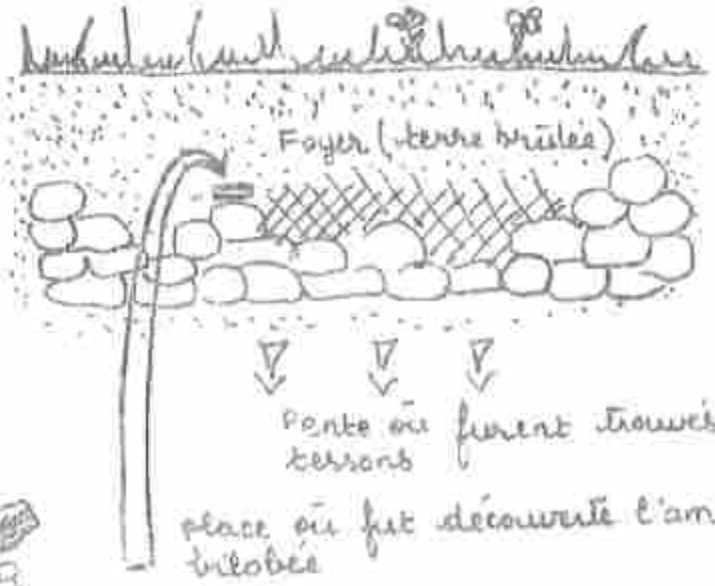 Foyer (terre brûlée)
Pente où furent trouvés
tessons
place où fut découverte l'am
bilobée